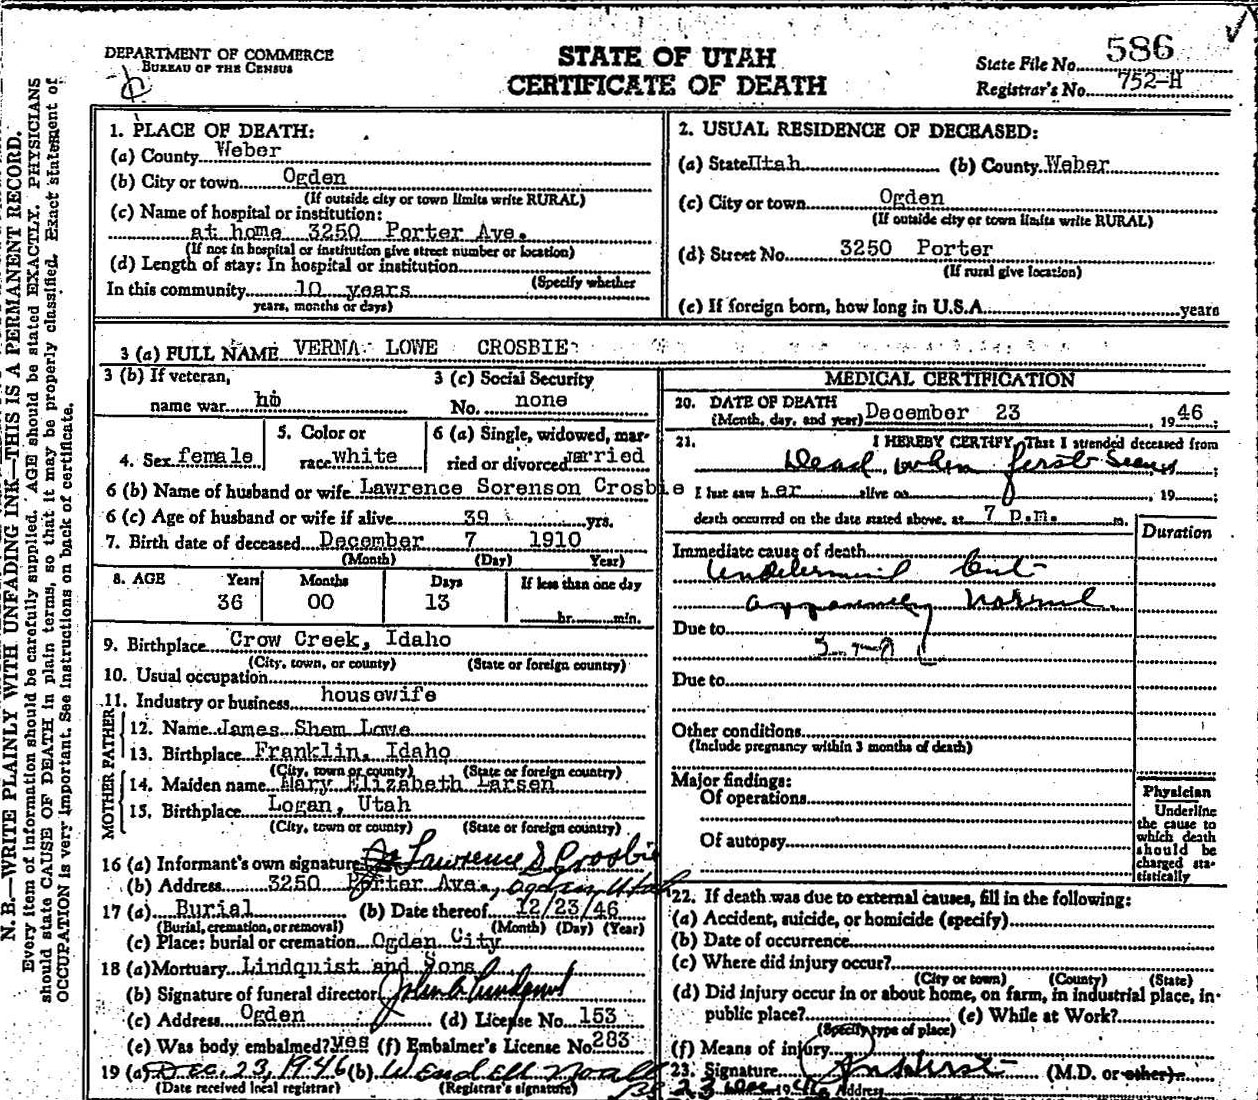 DEPARTMENT OF COMMERCE
BUREAU OF THE CENSUS
STATE OF UTAH
CERTIFICATE OF DEATH
State File No. 586
Registrar's No. 752-H
N. B.—WRITE PLAINLY WITH UNFADING INK—THIS IS A PERMANENT RECORD.
Every item of information should be carefully supplied. AGE should be stated EXACTLY. PHYSICIANS
should state CAUSE OF DEATH in plain terms, so that it may be properly classified. Exact statement of
OCCUPATION is very important. See instructions on back of certificate.
1. PLACE OF DEATH:
(a) County Weber
(b) City or town Ogden
(If outside city or town limits write RURAL)
(c) Name of hospital or institution:
at home 3250 Porter Ave.
(If not in hospital or institution give street number or location)
(d) Length of stay: In hospital or institution
(Specify whether
In this community 10 years
years, months or days)
2. USUAL RESIDENCE OF DECEASED:
(a) State Utah (b) County Weber
(c) City or town Ogden
(If outside city or town limits write RURAL)
(d) Street No. 3250 Porter
(If rural give location)
(e) If foreign born, how long in U.S.A. years
3 (a) FULL NAME VERNA LOWE CROSBIE
3 (b) If veteran,
name war no
3 (c) Social Security
No. none
4. Sex female
5. Color or
race white
6 (a) Single, widowed, mar-
ried or divorced married
6 (b) Name of husband or wife Lawrence Sorenson Crosbie
6 (c) Age of husband or wife if alive 39 yrs.
7. Birth date of deceased December 7 1910
(Month) (Day) Year)
8. AGE Years Months Days If less than one day
36 00 13 hr. min.
9. Birthplace Crow Creek, Idaho
(City, town, or county) (State or foreign country)
10. Usual occupation
11. Industry or business housewife
FATHER
12. Name James Shem Lowe
13. Birthplace Franklin, Idaho
(City, town or county) (State or foreign country)
MOTHER
14. Maiden name Mary Elizabeth Larsen
15. Birthplace Logan, Utah
(City, town, or county) (State or foreign country)
16 (a) Informant's own signature Lawrence S Crosbie
(b) Address 3250 Porter Ave., Ogden, Utah
17 (a) Burial (b) Date thereof 12/23/46
(Burial, cremation, or removal) (Month) (Day) (Year)
(c) Place: burial or cremation Ogden City
18 (a) Mortuary Lindquist and Sons
(b) Signature of funeral director
(c) Address Ogden (d) License No. 153
(e) Was body embalmed? yes (f) Embalmer's License No. 283
19 (a) Dec. 23, 1946 (b) Wendell Noall
(Date received local registrar) (Registrar's signature)
MEDICAL CERTIFICATION
20. DATE OF DEATH
(Month, day, and year) December 23, 1946
21. I HEREBY CERTIFY, That I attended deceased from
Dead when first seen
I last saw her alive on , 19 ;
death occurred on the date stated above, at 7 p.m. m.
Duration
Immediate cause of death
but
normal
Due to
Due to
Other conditions
(Include pregnancy within 3 months of death)
Major findings:
Of operations
Of autopsy
Physician
Underline
the cause to
which death
should be
charged sta-
tistically
22. If death was due to external causes, fill in the following:
(a) Accident, suicide, or homicide (specify)
(b) Date of occurrence
(c) Where did injury occur?
(City or town) (County) (State)
(d) Did injury occur in or about home, on farm, in industrial place, in
public place? (e) While at Work?
(Specify type of place)
(f) Means of injury
23. Signature (M.D. or other)
23 Dec 1946 Address